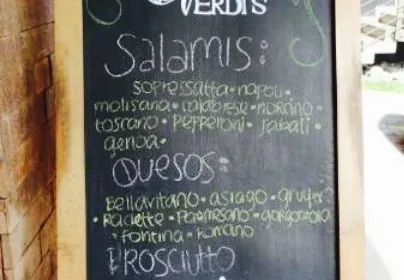 VERDI'S
Salamis:
sopressatta • napoli •
molisana • calabrese • norcino •
toscano • pepperoni • jabali •
genoa •
QUESOS:
Bellavitano • asiago • gruyer?
• Raclette • Parmesano • gorgonzola
• fontina • romano
PROSCIUTTO